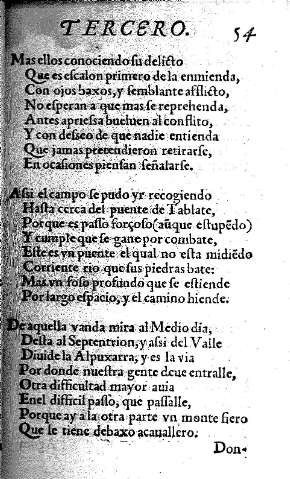 TERCERO. 54
Mas ellos conociendo su delicto
Que es escalon primero de la enmienda,
Con ojos baxos, y semblante afflicto,
No esperan a que mas se reprehenda,
Antes apriessa bueluen al conflito,
Y con desseo de que nadie entienda
Que jamas pretendieron retirarse,
En ocasiones piensan señalarse.
Assi el campo se pudo yr recogiendo
Hasta cerca del puente de Tablate,
Porque es passo forçoso (aũque estupẽdo)
Y cumple que se gane por combate,
Este es vn puente el qual no esta midiẽdo
Corriente rio que sus piedras bate:
Mas vn foso profundo que se estiende
Por largo espacio, y el camino hiende.
De aquella vanda mira al Medio dia,
Desta al Septentrion, y assi del Valle
Diuide la Alpuxarra, y es la via
Por donde nuestra gente deue entralle,
Otra difficultad mayor auia
Enel difficil passo, que passalle,
Porque ay a la otra parte vn monte fiero
Que se tiene debaxo acauallero.
Don-